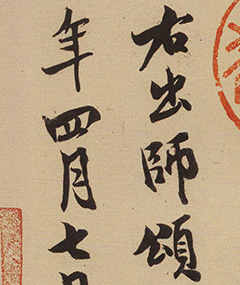 右出師頌
年四月七日